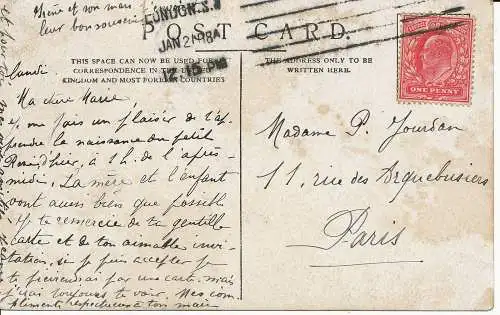 Irène et son mari
leur bon souvenir
LONDON. S.W
JAN 2 08
12.15 PM
POST CARD.
THIS SPACE CAN NOW BE USED FOR
CORRESPONDENCE IN THE UNITED
KINGDOM AND MOST FOREIGN COUNTRIES
THE ADDRESS ONLY TO BE
WRITTEN HERE.
POSTAGE REVENUE
ONE PENNY
Lundi
Ma chère Marie,
Je me fais un plaisir de t'ap-
prendre la naissance du petit
à 1 h. de l'après-
midi. La mère et l'enfant
vont aussi bien que possible
Je te remercie de ta gentille
carte et de ton aimable invi-
tation, si je puis accepter je
te préviendrai par une carte, mais
j'irai toujours te voir. Mes com-
pliments respectueux à ton mari
Madame P. Jourdan
11, rue des Arquebusiers
Paris